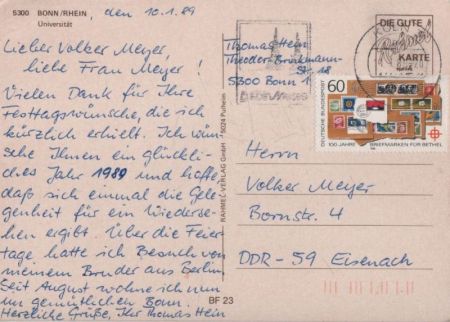 5300 BONN/RHEIN
Universität
, den 10.1.89
Lieber Volker Meyer,
liebe Frau Meyer!
Vielen Dank für Ihre
Festtagswünsche, die ich
kürzlich erhielt. Ich wün-
sche Ihnen ein glückli-
ches Jahr 1989 und hoffe,
daß sich einmal die Gele-
genheit für ein Wiederse-
hen ergibt. Über die Feier-
tage hatte ich Besuch von
meinem Bruder aus Berlin.
Seit August wohne ich nun
im gemütlichen Bonn.
Herzliche Grüße, Ihr Thomas Hein
RAHMEL-VERLAG GmbH · 5024 Pulheim
BF 23
Thomas Hein
Theodor-Brinkmann-
St. 18
5300 Bonn 1
DIE GUTE
KARTE
60
DEUTSCHE BUNDESPOST
100 JAHRE BRIEFMARKEN FÜR BETHEL
Herrn
Volker Meyer
Bornstr. 4
DDR-59 Eisenach